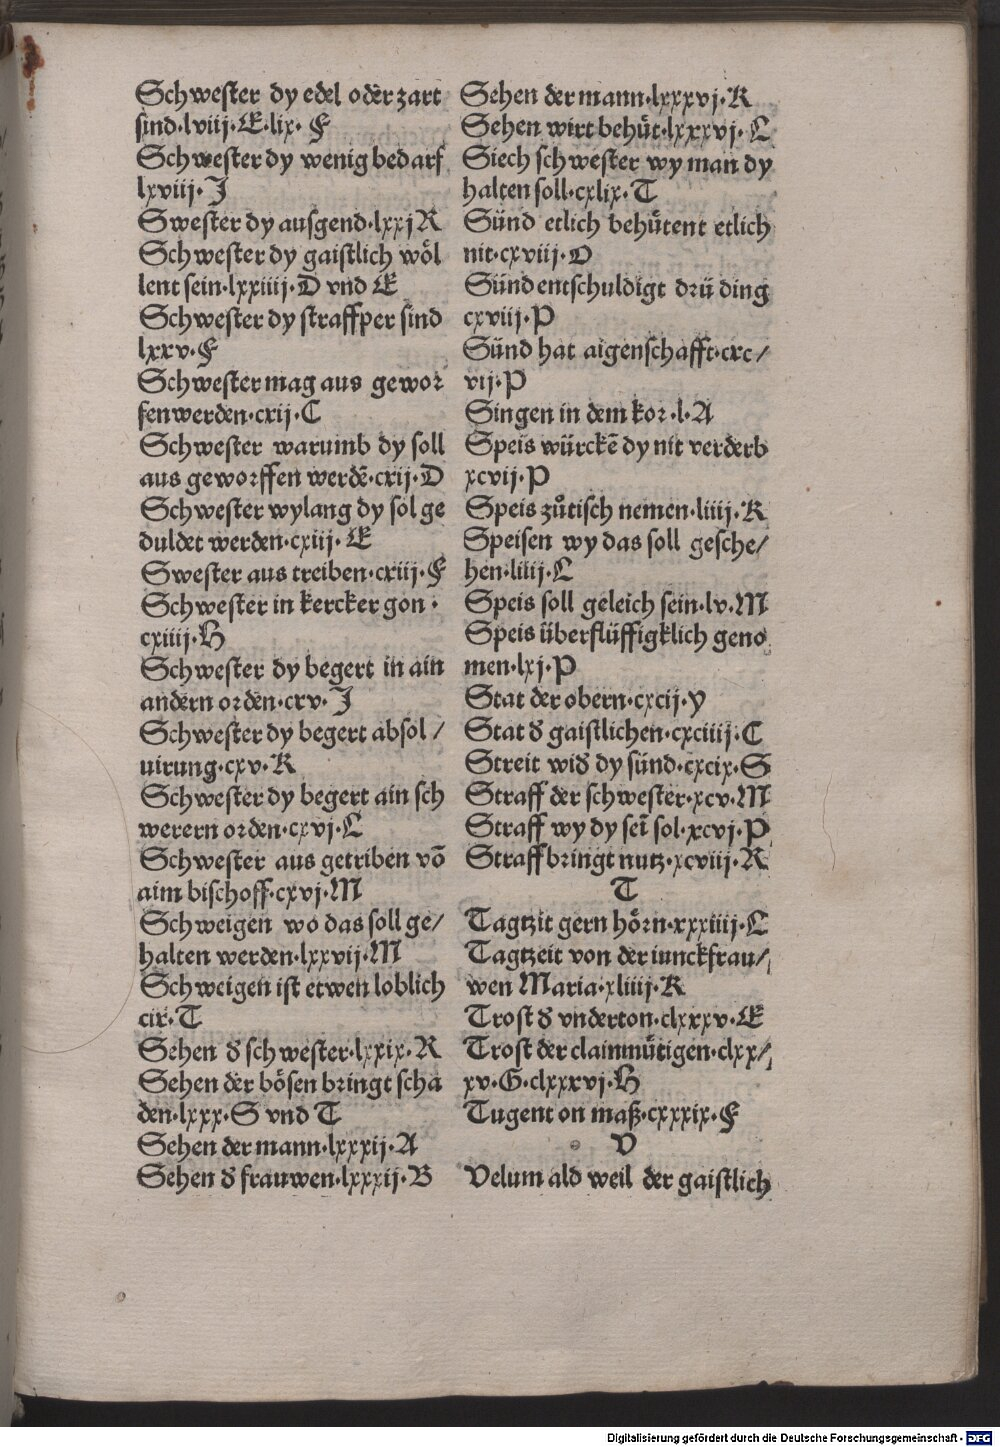 Schwester dy edel oder zart
sind·lviij·E·lix· F
Schwester dy wenig bedarf
lxviij·J
Swester dy ausgend·lxxj R
Schwester dy gaistlich wöl
lent sein·lxxiiij·D vnd E
Schwester dy straffper sind
lxxv·F
Schwester mag aus gewor
fen werden·cxij·C
Schwester warumb dy soll
aus geworffen werdē·cxij·D
Schwester wylang dy sol ge
duldet werden·cxiij·E
Swester aus treiben·cxiij·F
Schwester in kercker gon·
cxiiij·H
Schwester dy begert in ain
andern orden·cxv·J
Schwester dy begert absol/
uirung·cxv·K
Schwester dy begert ain sch
werern orden·cxvj·L
Schwester aus getriben vō
aim bischoff·cxvj·M
Schweigen wo das soll ge/
halten werden·lxxvij·M
Schweigen ist etwen loblich
cix·T
Sehen d̕ schwester·lxxix·R
Sehen der bösen bringt scha
den·lxxx·S vnd T
Sehen der mann·lxxxij·A
Sehen d̕ frauwen·lxxxij·B
Sehen der mann·lxxxvj·K
Sehen wirt behüt·lxxxvj·L
Siech schwester wy man dy
halten soll·cxlix·T
Sünd etlich behütent etlich
nit·cxviij·O
Sünd entschuldigt drü ding
cxviij·P
Sünd hat aigenschafft·cxc/
vij·P
Singen in dem kor·l·A
Speis würckē dy nit verderb
xcvij·P
Speis zůtisch nemen·liiij·K
Speisen wy das soll gesche/
hen·liiij·L
Speis soll geleich sein·lv·M
Speis überflüssigklich geno
men·lxj·P
Stat der obern·cxcij·y
Stat d̕ gaistlichen·cxciiij·C
Streit wid̕ dy sünd·cxcix·S
Straff der schwester·xcv·M
Straff wy dy seī sol·xcvj·P
Straff bringt nutz·xcviij·R
T
Tagtzit gern hörn·xxxiiij·L
Tagtzeit von der iunckfrau/
wen Maria·xliiij·K
Trost d̕ vnderton·clxxxv·E
Trost der clainmütigen·clxx/
xv·G·clxxxvj·H
Tugent on maß·cxxxix·F
V
Velum ald weil der gaistlich
Digitalisierung gefördert durch die Deutsche Forschungsgemeinschaft - DFG